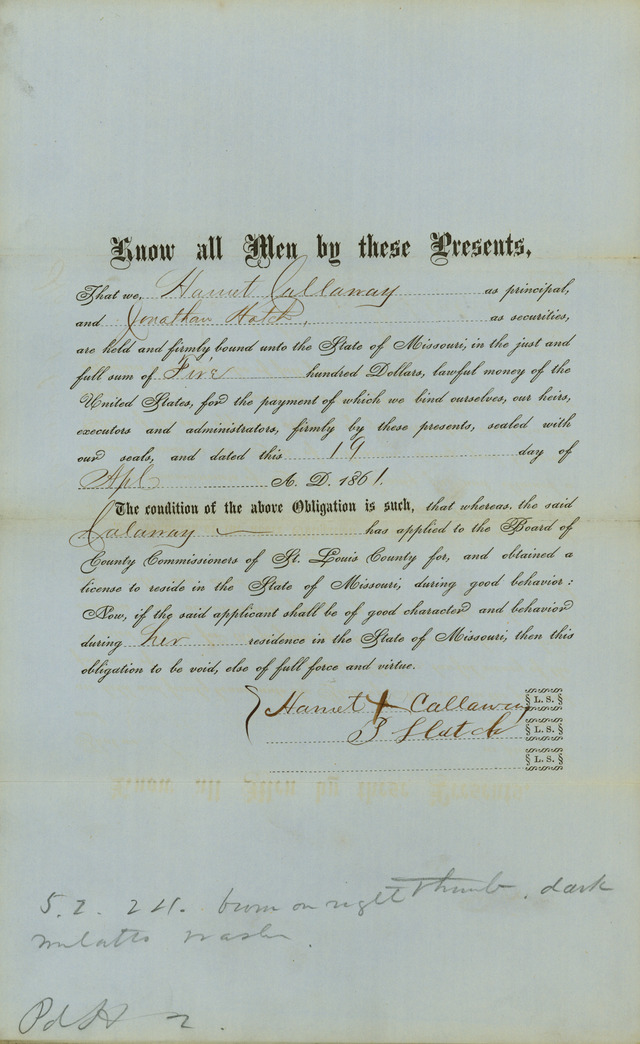 Know all Men by these Presents,
That we, Harriet Callaway as principal,
and Jonathan Hatch, as securities,
are held and firmly bound unto the State of Missouri, in the just and
full sum of Five hundred Dollars, lawful money of the
United States, for the payment of which we bind ourselves, our heirs,
executors and administrators, firmly by these presents, sealed with
our seals, and dated this 19 day of
Apl A. D. 1861.
The condition of the above Obligation is such, that whereas, the said
Calaway has applied to the Board of
County Commissioners of St. Louis County for, and obtained a
license to reside in the State of Missouri, during good behavior:
Now, if the said applicant shall be of good character and behavior
during her residence in the State of Missouri, then this
obligation to be void, else of full force and virtue.
Harriet + Callaway L. S.
J Hatch L. S.
L. S.
5.2. 24. burn on right thumb. dark
mulatto washer.
Pd 2.